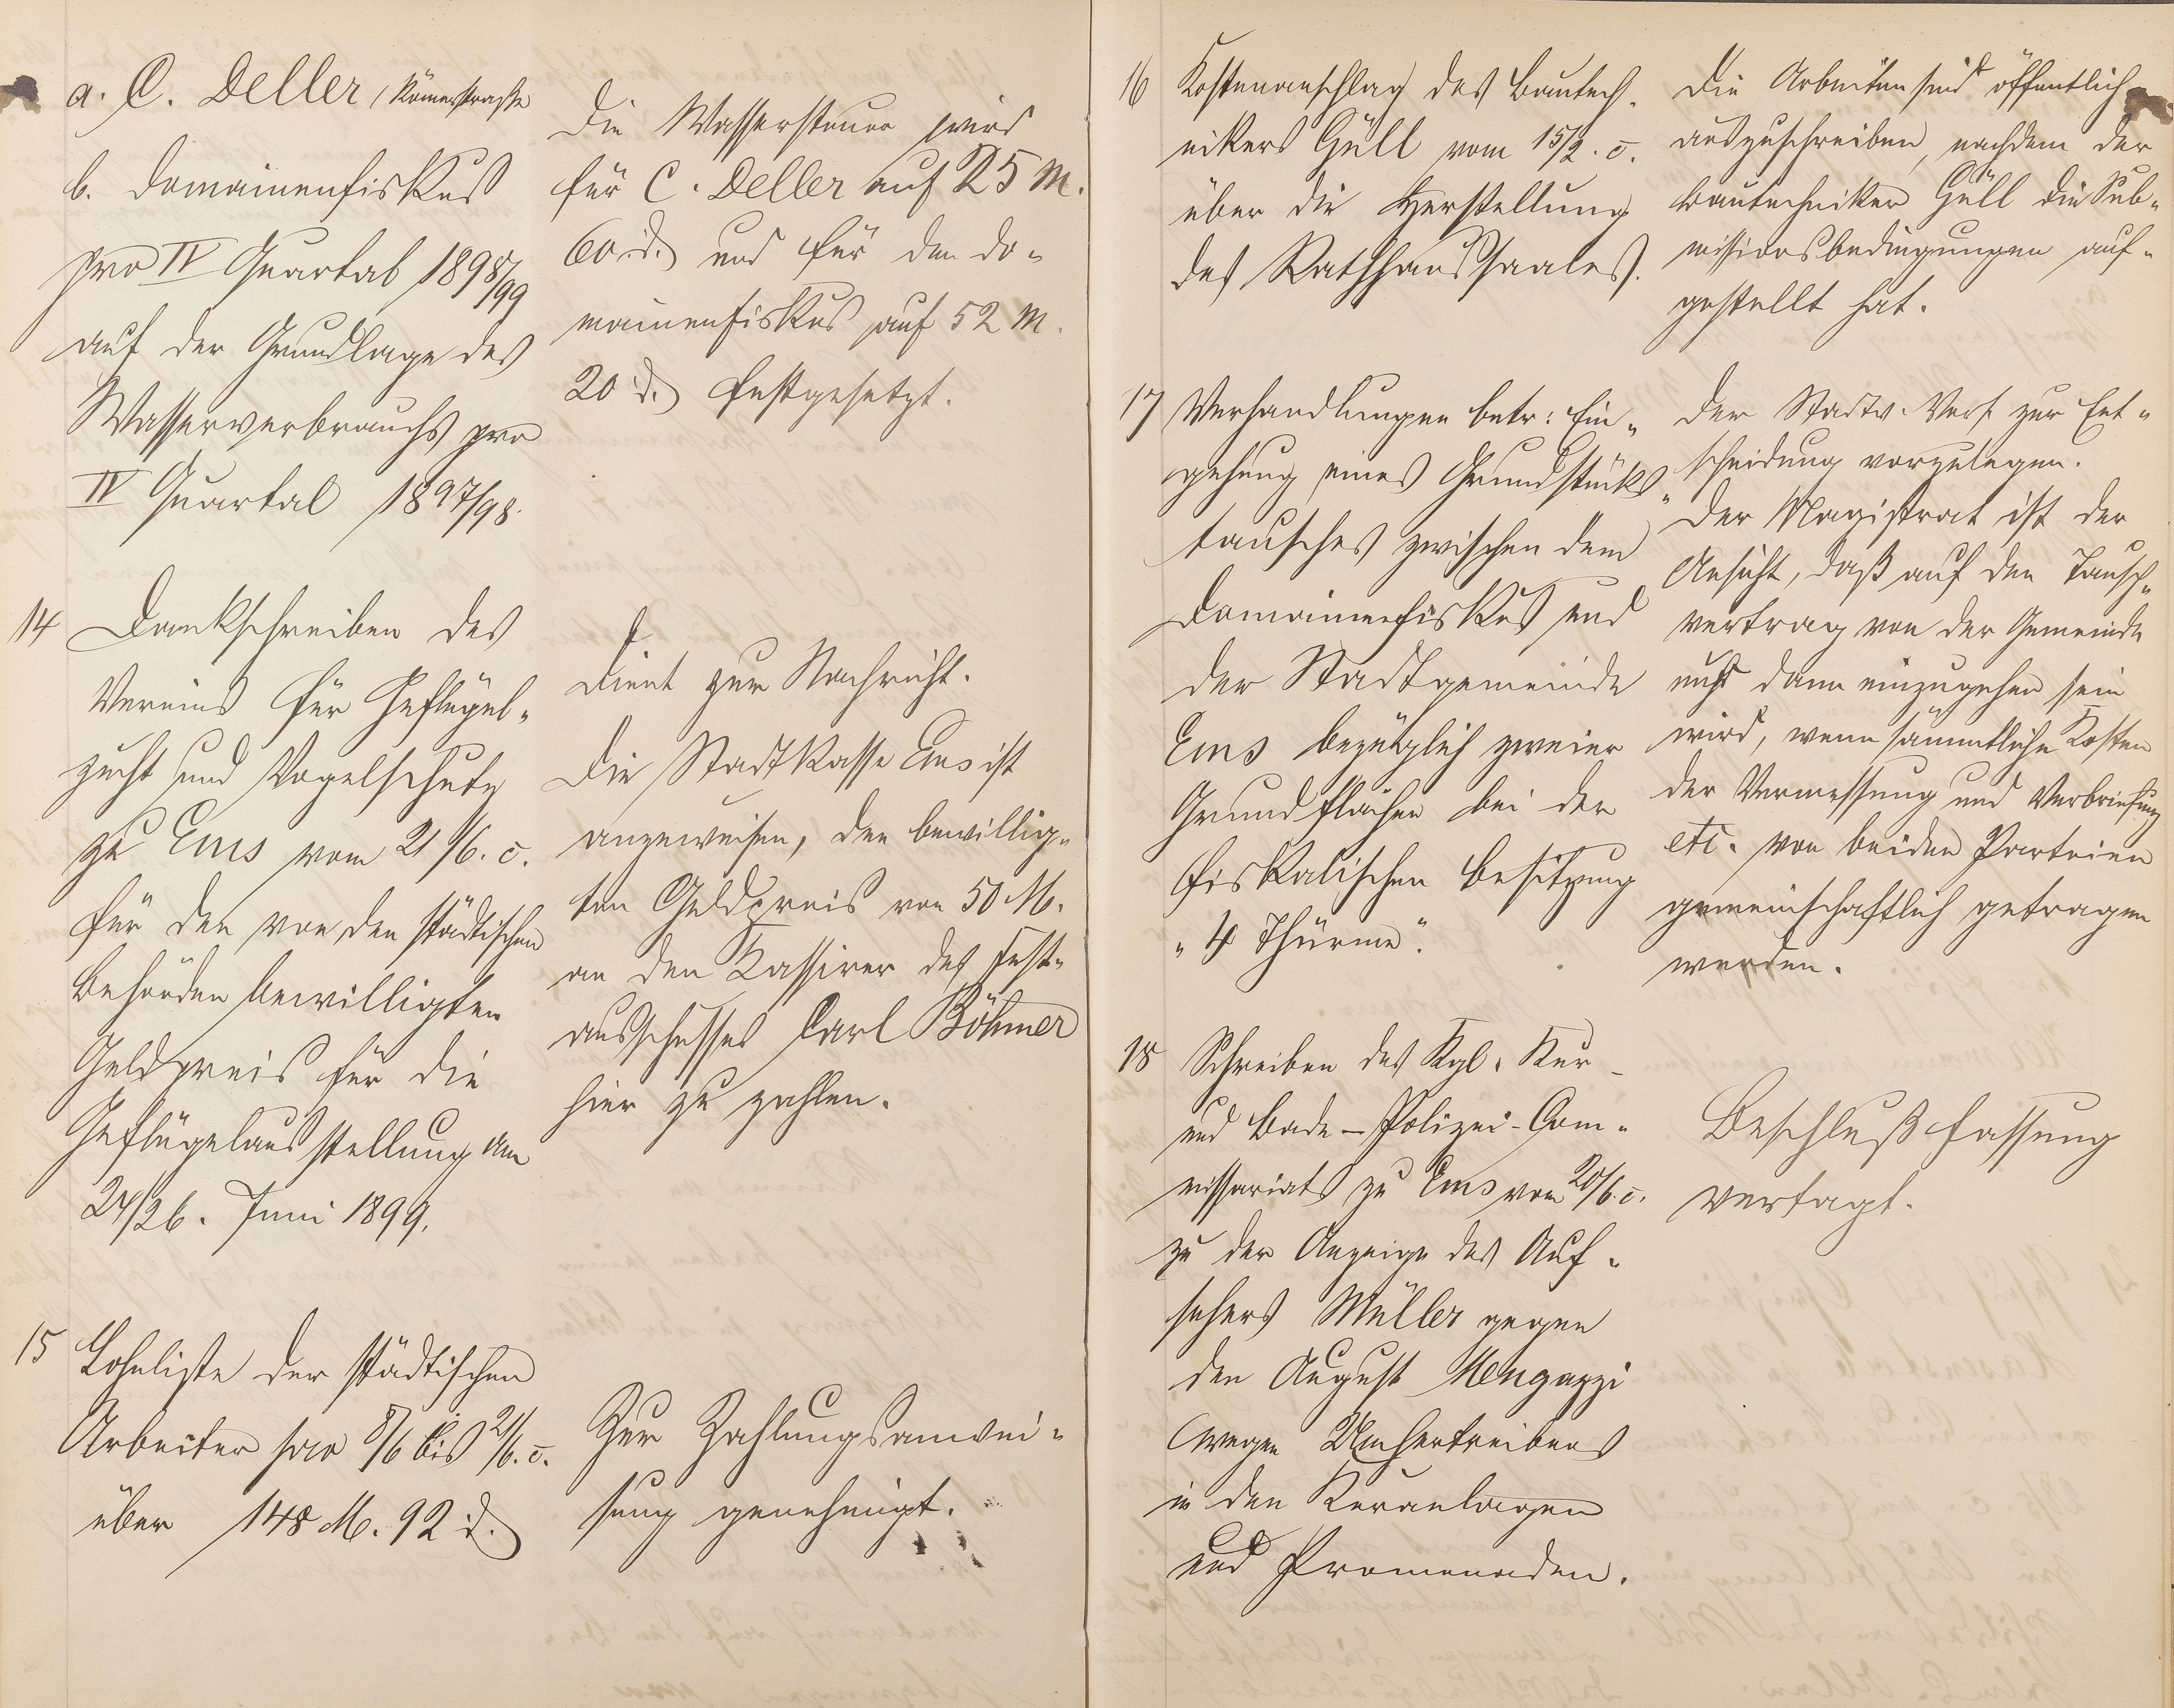 a. C. Deller, Römerstraße
b. Domainenfiskus
pro IV Quartal 1898/99
auf der Grundlage des
Wasserverbrauchs pro
IV Quartal 1897/98.
Die Wassersteuer wird
für C. Deller auf 25 M.
60 d. und für den Do-
mainenfiskus auf 52 M.
20 d. festgesetzt.
14 Dankschreiben des
Vereins für Geflügel-
zucht und Vogelschutz
zu Ems vom 21/6. c.
für den von den städtischen
Behörden bewilligten
Geldpreis für die
Geflügelausstellung am
24/26. Juni 1899.
Dient zur Nachricht.
Die Stadtkasse Ems ist
anzuweisen, den bewillig-
ten Geldpreis von 50 M.
an den Kassirer des Fest-
ausschusses Carl Böhmer
hier zu zahlen.
15 Lohnliste der städtischen
Arbeiter pro 8/6 bis 21/6. c.
über 148 M. 92 d.
Zur Zahlungsanwei-
sung genehmigt.
16 Kostenanschlag des Bautech-
nikers Güll vom 15/2. c.
über die Herstellung
des Rathhaussaales.
Die Arbeiten sind öffentlich
auszuschreiben, nachdem der
Bautechniker Güll die Sub-
missionsbedingungen auf-
gestellt hat.
17 Verhandlungen betr: Ein-
gehung eines Grundstücks-
tausches zwischen dem
Domainenfiskus und
der Stadtgemeinde
Ems bezüglich zweier
Grundflächen bei der
fiskalischen Besitzung
"4 Thürme".
Der Stadtv. Vers. zur Ent-
scheidung vorzulegen.
Der Magistrat ist der
Ansicht, daß auf den Tausch-
vertrag von der Gemeinde
nur dann einzugehen sein
wird, wenn sämmtliche Kosten
der Vermessung und Verbriefung
etc. von beiden Parteien
gemeinschaftlich getragen
werden.
18 Schreiben des Kgl. Kur-
und Bade-Polizei-Com-
missariats zu Ems vom 20/6. c.
zu der Anzeige des Auf-
sehers Müller gegen
den August Mengazzi
wegen Umhertreibens
in den Kuranlagen
und Promenaden.
Beschlußfassung
vertagt.